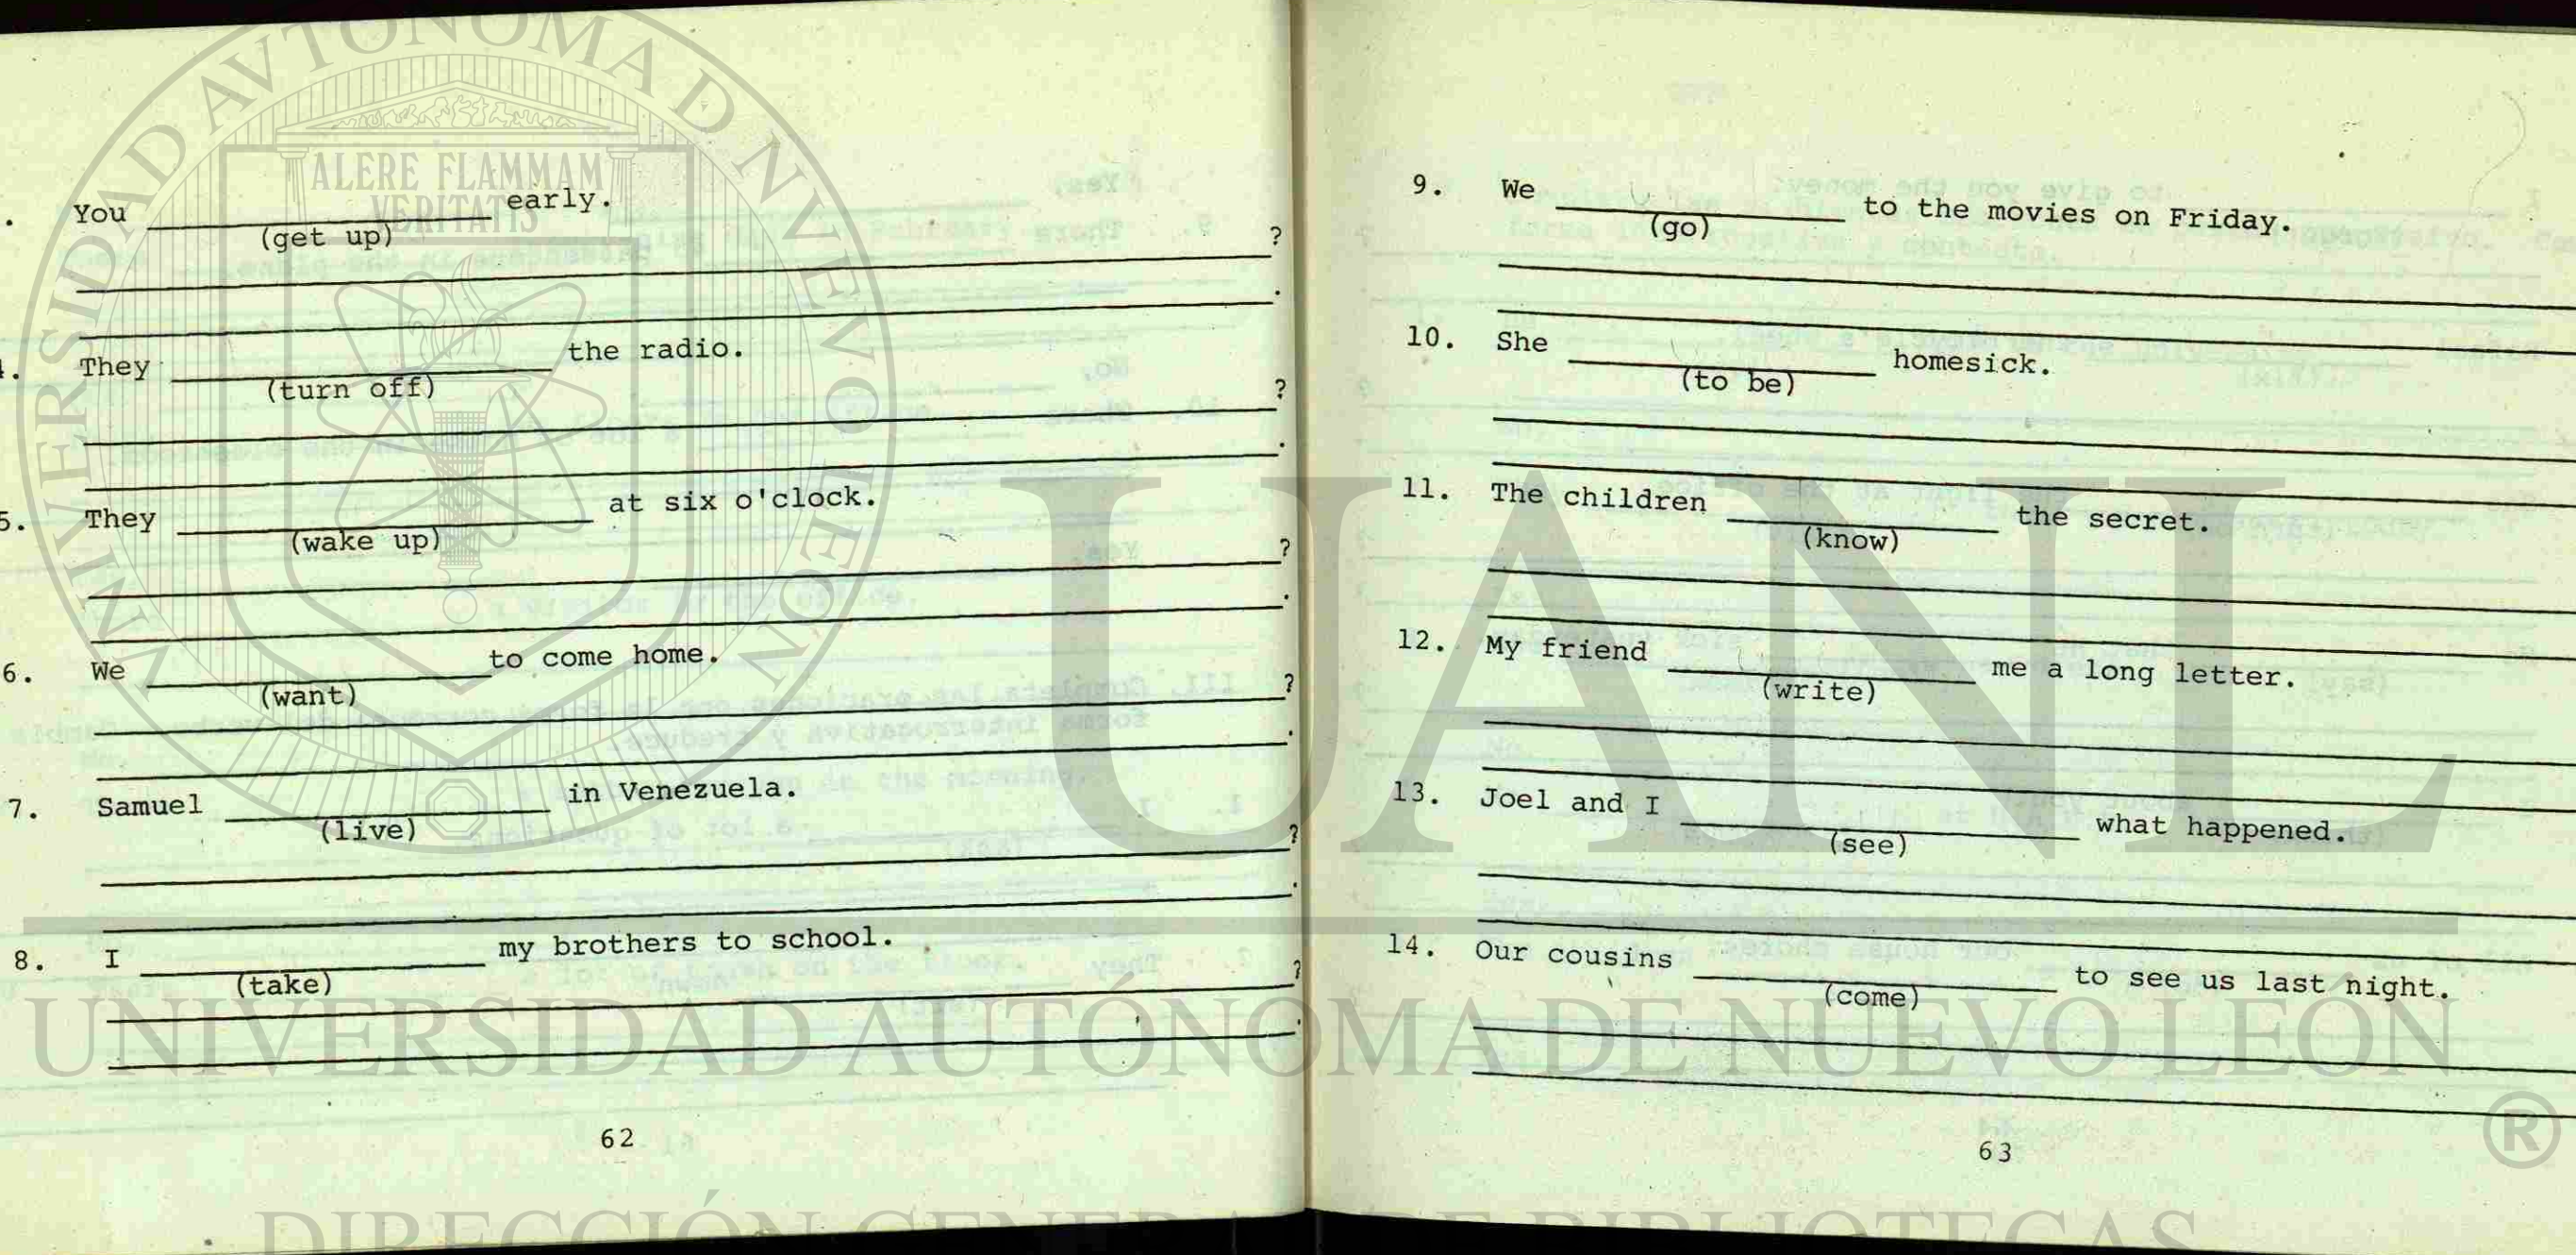 . You ____________ early.
(get up)
?
.
4. They ____________ the radio.
(turn off)
?
.
5. They ____________ at six o'clock.
(wake up)
?
.
6. We ____________ to come home.
(want)
?
.
7. Samuel ____________ in Venezuela.
(live)
?
.
8. I ____________ my brothers to school.
(take)
?
.
62
9. We ____________ to the movies on Friday.
(go)
10. She ____________ homesick.
(to be)
11. The children ____________ the secret.
(know)
12. My friend ____________ me a long letter.
(write)
13. Joel and I ____________ what happened.
(see)
14. Our cousins ____________ to see us last night.
(come)
63
UNIVERSIDAD AVTONOMA D NVEVO LEON
ALERE FLAMMAM
VERITATIS
UANL
UNIVERSIDAD AUTÓNOMA DE NUEVO LEÓN
®
DIRECCIÓN GENERAL DE BIBLIOTECAS